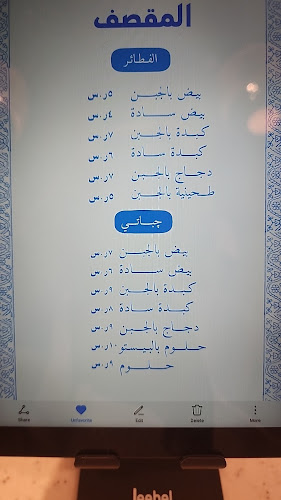 المقصف
الفطائر
بيض بالجبن ٥ر.س
بيض سادة ٤ر.س
كبدة بالجبن ٧ر.س
كبدة سادة ٦ر.س
دجاج بالجبن ٧ر.س
طحينية بالجبن ٥ر.س
چباتي
بيض بالجبن ٧ر.س
بيض سادة ٦ر.س
كبدة بالجبن ٩ر.س
كبدة سادة ٨ر.س
دجاج بالجبن ٩ر.س
حلوم بالبيستو ١٠ر.س
حلوم ٩ر.س
Share Unfavorite Edit Delete More